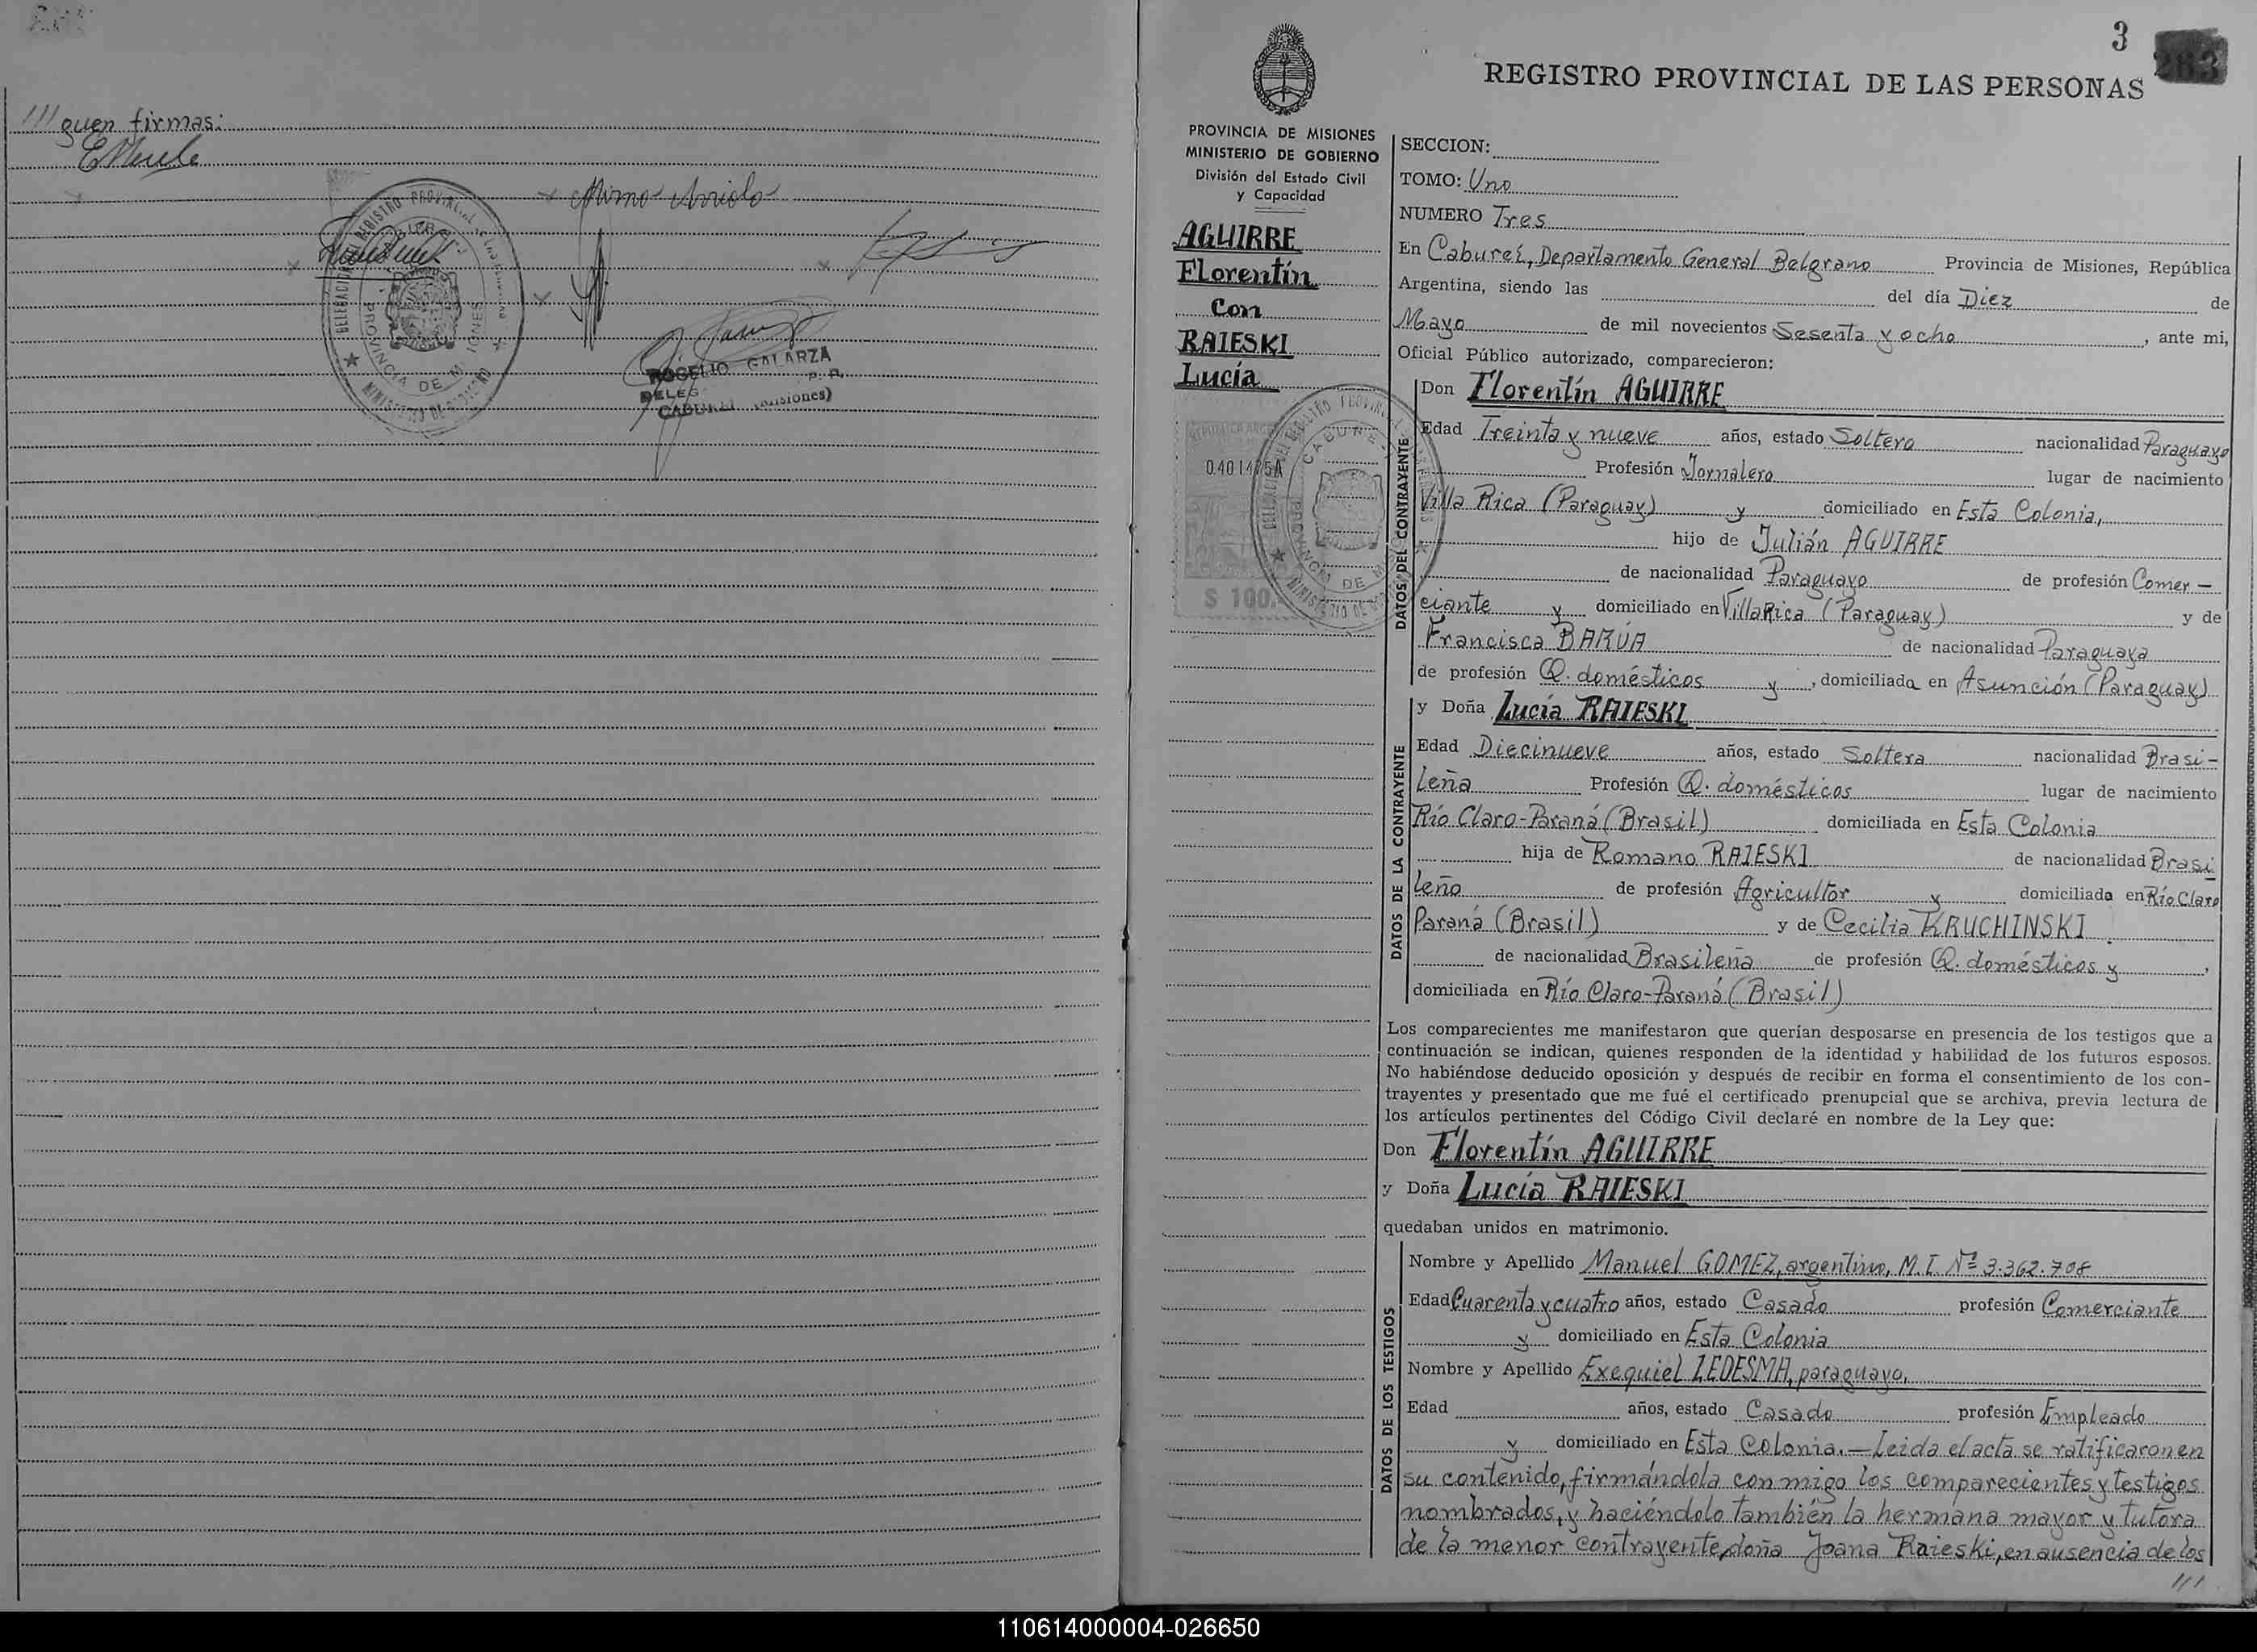 ///guen firmas:
ROSELIO GALARZA
DELEG P. P.
CABUREI (Misiones)
DELEGACION DEL REGISTRO PROVINCIAL DE LAS PERSONAS
PROVINCIA DE MISIONES
MINISTERIO DE GOBIERNO
3
283
REGISTRO PROVINCIAL DE LAS PERSONAS
PROVINCIA DE MISIONES
MINISTERIO DE GOBIERNO
División del Estado Civil
y Capacidad
AGUIRRE
Florentín
Con
RAIESKI
Lucía
$ 100.-
SECCION:
TOMO: Uno
NUMERO Tres
En Cabureí, Departamento General Belgrano Provincia de Misiones, República
Argentina, siendo las del día Diez de
Mayo de mil novecientos Sesenta y ocho, ante mi,
Oficial Público autorizado, comparecieron:
DATOS DEL CONTRAYENTE
Don Florentín AGUIRRE
Edad Treinta y nueve años, estado Soltero nacionalidad Paraguayo
Profesión Jornalero lugar de nacimiento
Villa Rica (Paraguay) y domiciliado en Esta Colonia,
hijo de Julián AGUIRRE
de nacionalidad Paraguayo de profesión Comer-
ciante y domiciliado en Villa Rica (Paraguay) y de
Francisca BARÚA de nacionalidad Paraguaya
de profesión Q. domésticos y, domiciliada en Asunción (Paraguay)
DATOS DE LA CONTRAYENTE
y Doña Lucía RAIESKI
Edad Diecinueve años, estado Soltera nacionalidad Brasi-
leña Profesión Q. domésticos lugar de nacimiento
Río Claro-Paraná (Brasil) domiciliada en Esta Colonia
hija de Romano RAIESKI de nacionalidad Brasi
leño de profesión Agricultor y domiciliado en Río Claro
Paraná (Brasil) y de Cecilia KRUCHINSKI
de nacionalidad Brasileña de profesión Q. domésticos y,
domiciliada en Río Claro-Paraná (Brasil)
Los comparecientes me manifestaron que querían desposarse en presencia de los testigos que a
continuación se indican, quienes responden de la identidad y habilidad de los futuros esposos.
No habiéndose deducido oposición y después de recibir en forma el consentimiento de los con-
trayentes y presentado que me fué el certificado prenupcial que se archiva, previa lectura de
los artículos pertinentes del Código Civil declaré en nombre de la Ley que:
Don Florentín AGUIRRE
y Doña Lucía RAIESKI
quedaban unidos en matrimonio.
DATOS DE LOS TESTIGOS
Nombre y Apellido Manuel GOMEZ, argentino, M.I. Nº 3.362.708
Edad Cuarenta y cuatro años, estado Casado profesión Comerciante
y domiciliado en Esta Colonia
Nombre y Apellido Exequiel LEDESMA, paraguayo,
Edad años, estado Casado profesión Empleado
y domiciliado en Esta Colonia.—Leida el acta se ratificaron en
su contenido, firmándola con migo los comparecientes y testigos
nombrados, y haciéndolo también la hermana mayor y tutora
de la menor contrayente, doña Joana Raieski, en ausencia de los
///
110614000004-026650